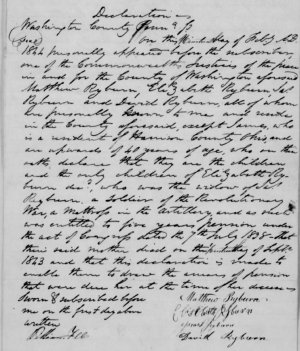 Declaration
Washington County
On this Ninth day of Feby AD
1844 personally appeared before the subscriber
one of the Commonwealths Justices of the peace
in and for the County of Washington aforesaid
Matthew Ryburn, Elizabeth Ryburn,
Ryburn and David Ryburn, all of whom
are personally known to me and reside
in the County aforesaid except James, who
is a resident of Harrison County and
are upwards of 40 years of age, who on their
oath, declare that they are the children
and the only children of Elizabeth Ry
burn decd, who was the widow of
Ryburn, a Soldier of the Revolutionary
War, a in the Artillery, and as such
was entitled to five years pension under
the act of Congress dated the 7th July 1838 that
their said mother died on the of Sept
1843 and that this declaration is made to
enable them to draw the arrears of pension
that were due her at the time of her decease
Sworn & subscribed before
me on the first day above
written
Matthew Ryburn
Elizabeth Ryburn
Ryburn
David Ryburn